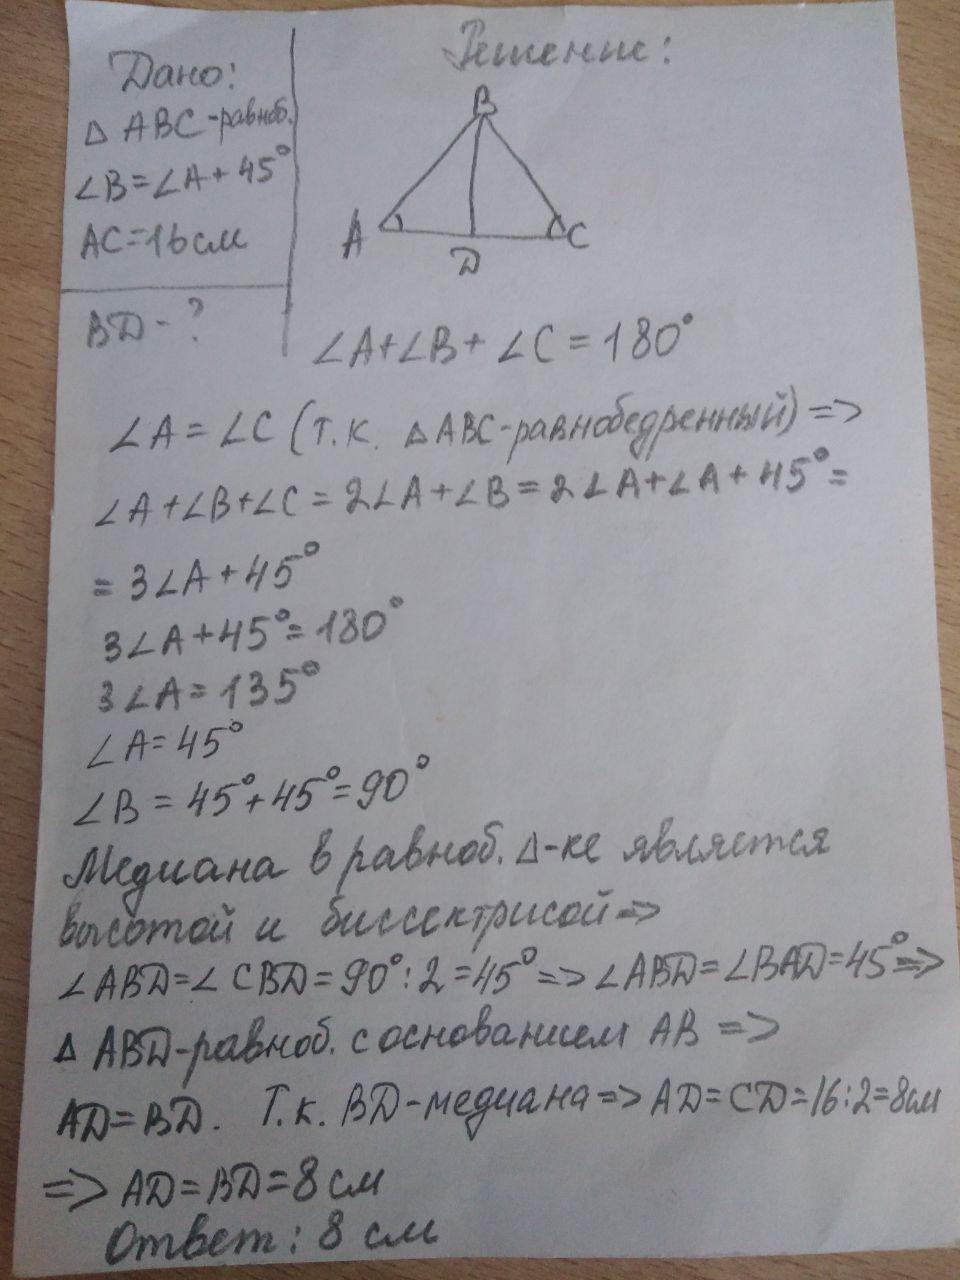 Дано:
△ ABC-равноб.
∠B=∠A+45°
AC=16см
BD-?
Решение:
B
A
C
D
∠A+∠B+∠C=180°
∠A=∠C (т.к. △ABC-равнобедренный)=>
∠A+∠B+∠C=2∠A+∠B=2∠A+∠A+45°=
=3∠A+45°
3∠A+45°=180°
3∠A=135°
∠A=45°
∠B=45°+45°=90°
Медиана в равноб. △-ке является
высотой и биссектрисой=>
∠ABD=∠CBD=90°:2=45°=>∠ABD=∠BAD=45°=>
△ ABD-равноб. с основанием AB =>
AD=BD. Т.к. BD-медиана=>AD=CD=16:2=8см
=> AD=BD=8 см
Ответ: 8 см